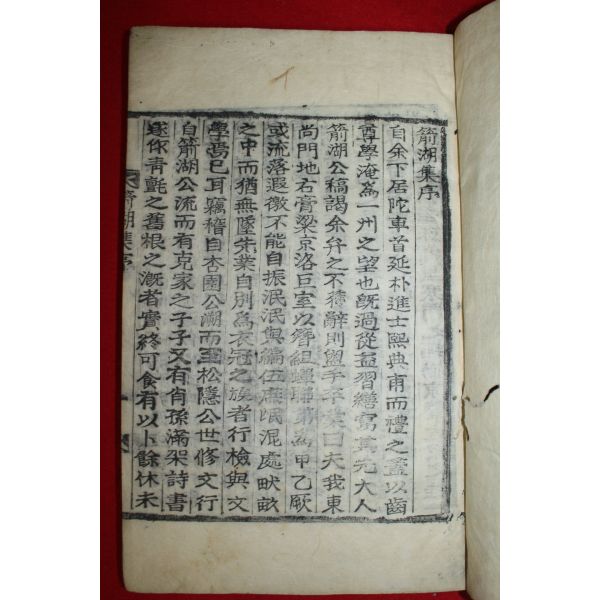 箭湖集序
自余下居陀車首延朴進士熙典甫而禮之蓋以齒
尊學淹為一州之望也旣過從益習繕寫其先大人
箭湖公稿謁余弁之不穫辭則盥手卒業曰夫我東
尚門地右膏粱京洛巨室以簪組蟬聯第為甲乙厥
或流落遐徼不能自振泯泯與編伍庶氓混處畎畝
之中而猶無墜先業自別為衣冠之族者行檢與文
學焉已耳竊稽自杏園公溯而至松隱公世修文行
自箭湖公流而有克家之子子又有肖孫滿架詩書
遂作青氈之舊根之漑者實終可食有以卜餘休未
箭湖集序